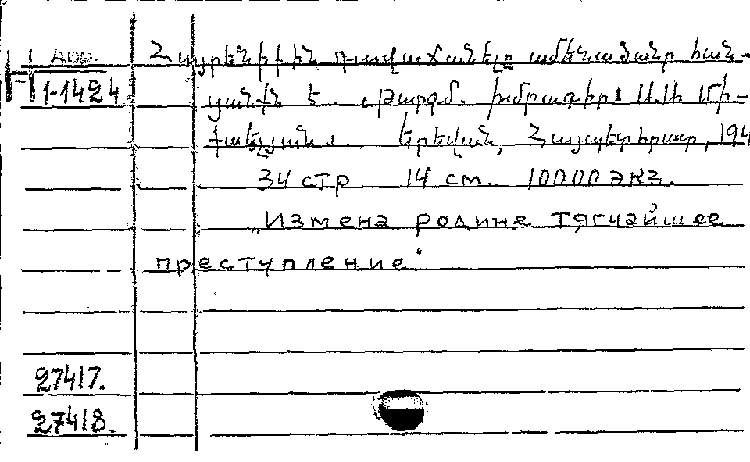 Арм.
1-1424
Հայրենիքին դավաճանելը ամենածանր հան-
ցանքն է. Թարգմ. խմբագիր՝ Ա.Ի. Մի-
քաելյան. Երևան, Հայպետհրատ, 194
34 стр 14 см. 10000 экз.
„Измена родине тягчайшее
преступление"
27417.
27418.